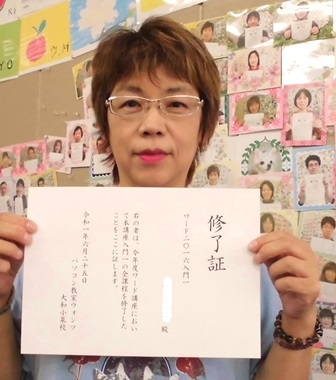 修了証
ワード二〇一六入門一
殿
右の者は、今年度ワード講座におい
て本講座入門一の全課程を修了した
ことをここに証します。
令和一年六月二十五日
パソコン教室ウォンツ
大和小泉校